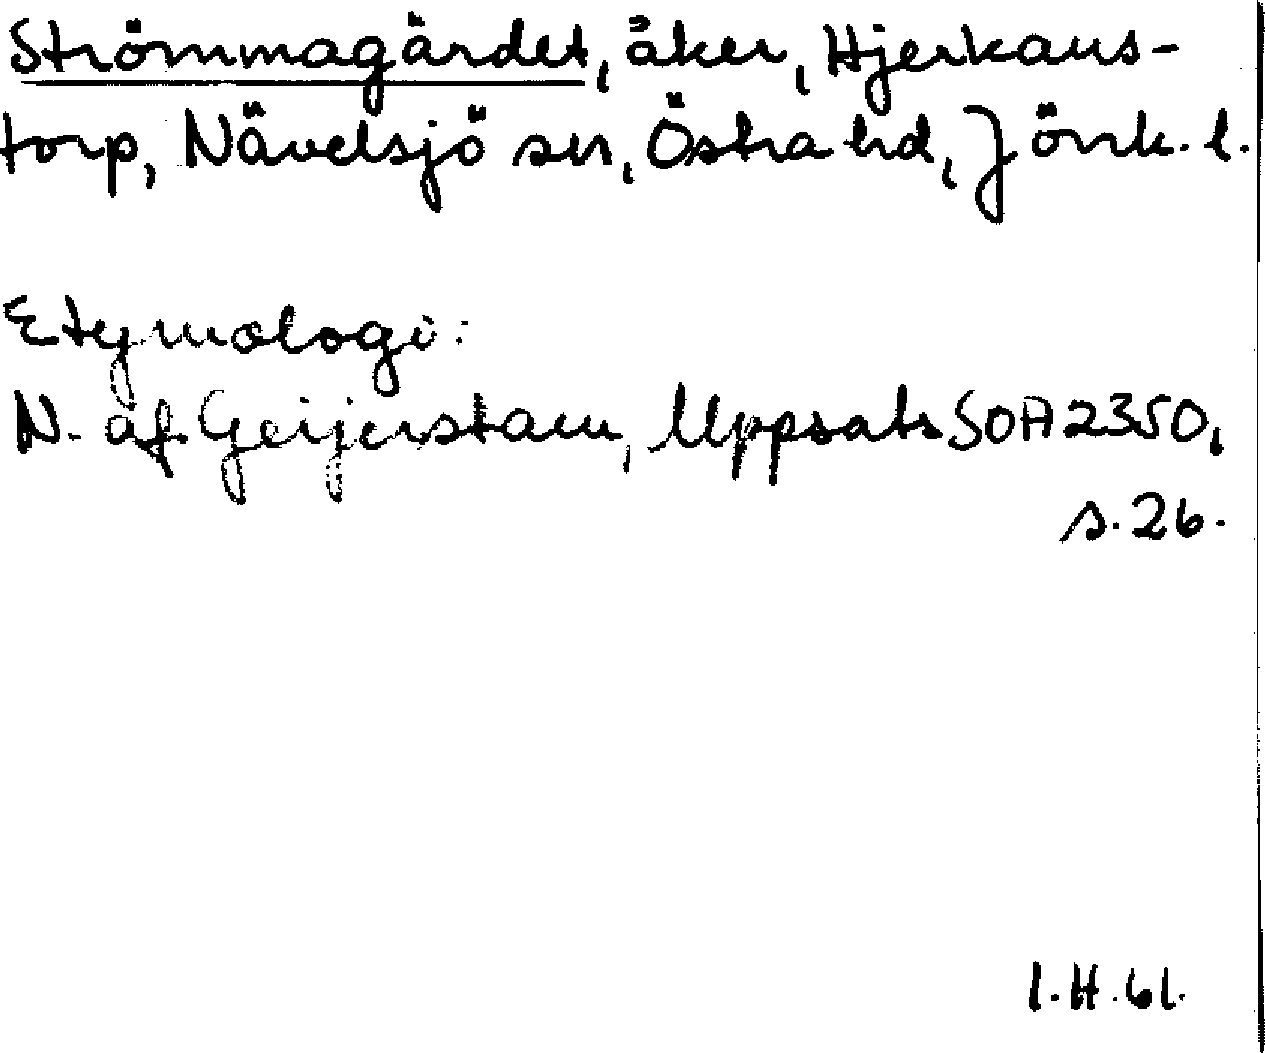 Strömmagärdet, åker, Hjerkaus-
torp, Nävelsjö sn, Östra hd, Jönk. l.
Etymologi:
N. af Geijerstam, Uppsats SOA 2350,
s. 26.
I.H.61.